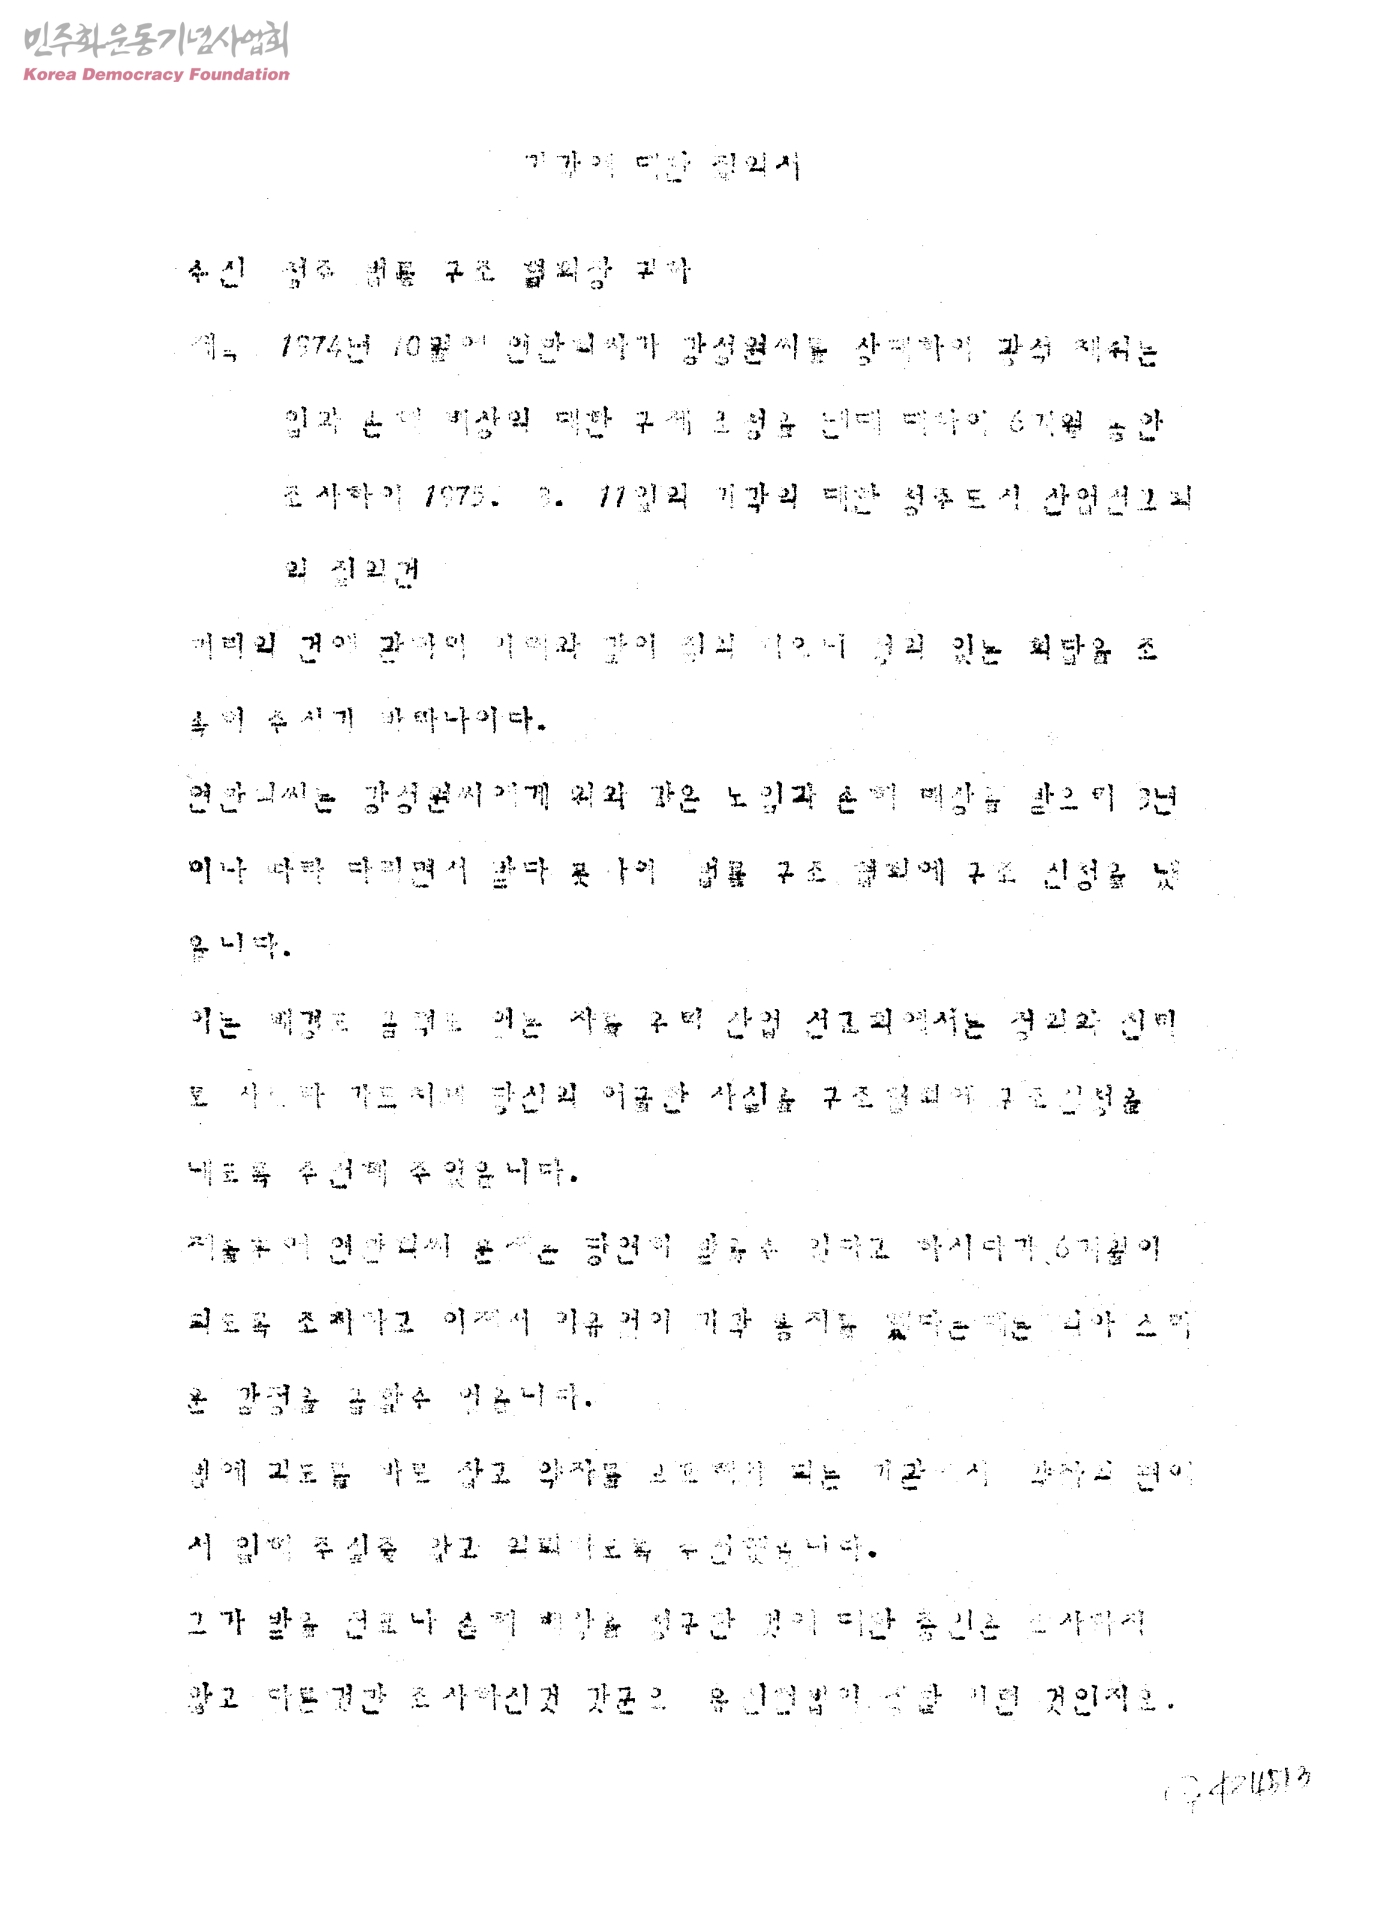 민주화운동기념사업회
Korea Democracy Foundation
기각에 대한 질의서
수신 청주 법률 구조 협회장 귀하
제목 1974년 10월에 연만희씨가 강성원씨를 상대하여 광석 채취는
임과 손해 배상의 대한 구제 요청을 낸데 대하여 6개월 동안
조사하여 1975. 3. 11일의 기각의 대한 청주도시 산업선교회
의 질의건
머리의 건에 관하여 아래와 같이 질의 하오니 성의 있는 회답을 조
속히 주시기 바라나이다.
연만희씨는 강성원씨에게 위와 같은 노임과 손해 배상을 받으려
이나 따라 다니면서 받다 못하여 법률 구조 협회에 구조 신청을 냈
읍니다.
이는 배경도 금력도 없는 자를 구력 산업 선교회에서는 정의와 진리
로 당신의 억울한 사실을 구조협회에 구조신청을
내도록 주선해 주었읍니다.
처음부터 연만희씨 문제는 당연히 받을수 있다고 하시다가 6개월이
되도록 조치하고 이제서 이유없이 기각 통지를 했다는데는 의아 스러
운 감정을 금할수 없읍니다.
법에 궤도를 바로 잡고 약자를 보호해야 되는 기관에서 편에
서 일해 주실줄 알고 의뢰하도록 주선했읍니다.
그가 받을 권리나 손해 배상을 청구한 것에 대한 충신은 조사하지
않고 다른것만 조사하신것 같군요 유신헌법이 이런 것인지요.